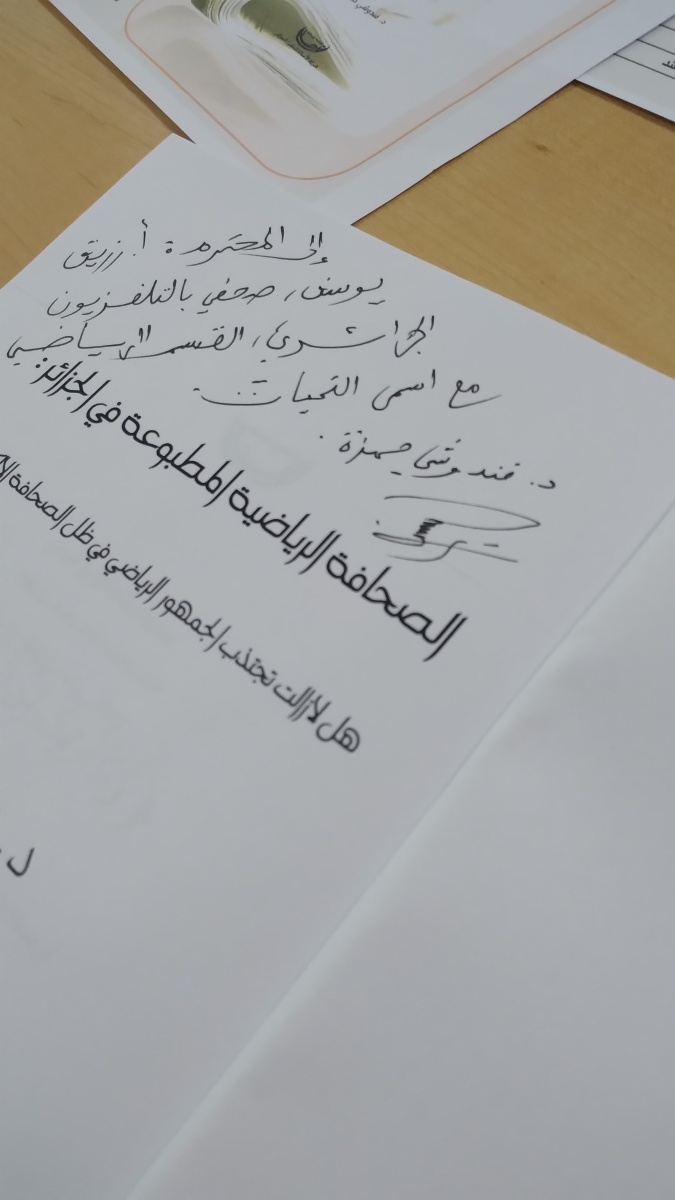 د. قندوشي
إلى المحترم : أ. رزيق
يوسف، صحفي بالتلفزيون
الجزائري، القسم الرياضي
مع اسمى التحيات...
د. قندوشي حمزة.
الصحافة الرياضية المطبوعة في الجزائر:
هل لازالت تجتذب الجمهور الرياضي في ظل الصحافة